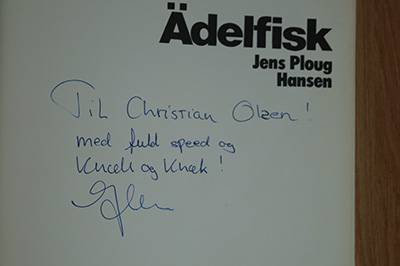 Ädelfisk
Jens Ploug
Hansen
Til Christian Olsen!
med fuld speed og
Knæk og Knæk!